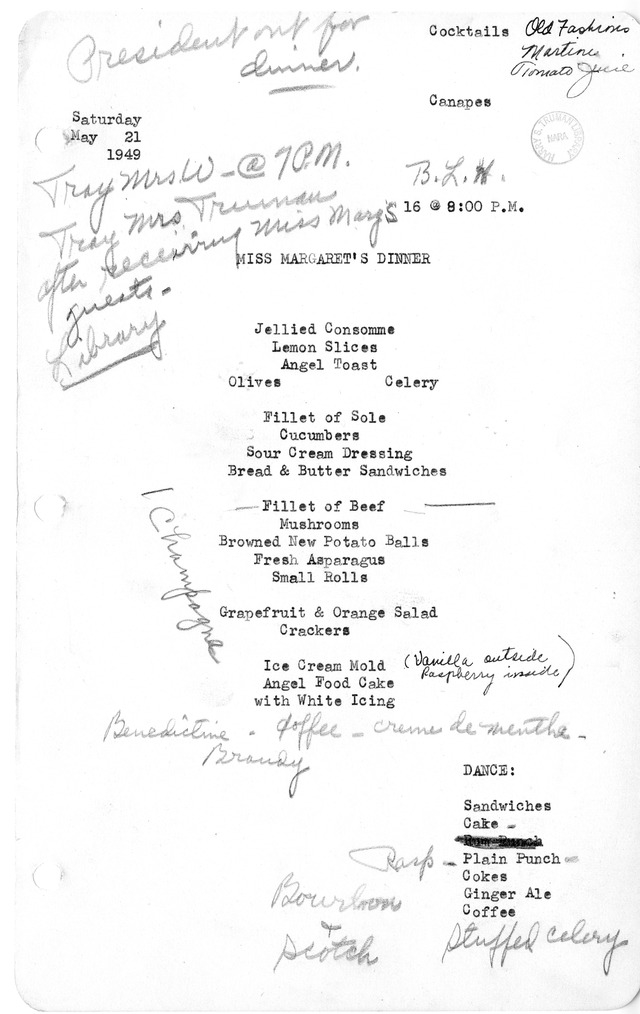 President out for
dinner.
Cocktails Old Fashions
Martinis
Tomato Juice
Canapes
Saturday
May 21
1949
HARRY S. TRUMAN LIBRARY
NARA
Tray Mrs. W - @ 7 P.M.
Tray Mrs Truman
after receiving Miss Marg's
guests -
Library
B.L.H.
16 @ 8:00 P.M.
MISS MARGARET'S DINNER
Jellied Consomme
Lemon Slices
Angel Toast
Olives Celery
Fillet of Sole
Cucumbers
Sour Cream Dressing
Bread & Butter Sandwiches
Fillet of Beef
Mushrooms
Browned New Potato Balls
Fresh Asparagus
Small Rolls
1 Champagne
Grapefruit & Orange Salad
Crackers
Ice Cream Mold (Vanilla outside
Raspberry inside)
Angel Food Cake
with White Icing
Benedictine - Coffee - creme de menthe -
Brandy
DANCE:
Sandwiches
Cake -
Rum Punch
Rasp - Plain Punch -
Cokes
Ginger Ale
Coffee
Stuffed celery
Bourbon
+
Scotch